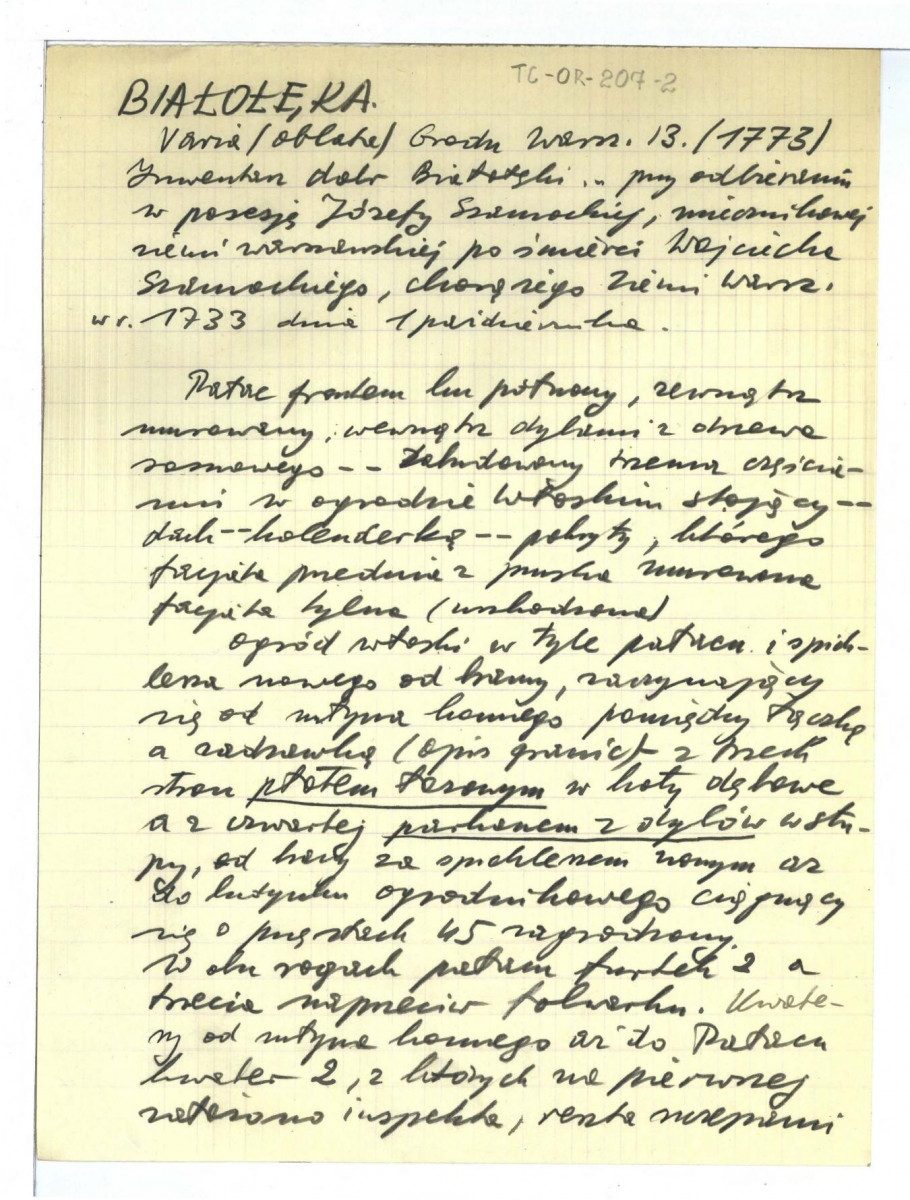 TC-OR-207-2
BIAŁOŁĘKA.
Varia (oblata) Grodu Warsz. 13. (1773)
Inwentarz dobr Białołęki .. przy odbieraniu
w posesją Józefy Szamockiej, miecznikowej
ziemi warszawskiej po śmierci Wojciecha
Szamockiego, chorążego Ziemi Warsz.
w r. 1733 dnia 1 października.
Pałac frontem ku północy, zewnątrz
murowany, wewnątrz dylami z drzewa
sosnowego -- zabudowany trzema częścia-
mi w ogrodzie włoskim stojący --
dach -- holenderką -- pokryty, którego
facjata przednia z pruska murowana
facjata tylna (uszkodzona)
ogród włoski w tyle pałacu i spich-
lerza nowego od bramy, zaczynający
się od młyna konnego pomiędzy łączką
a sadzawką (opis granic) - z trzech
stron płotem łozowym w koły dębowe
a z czwartej parkanem z dylów w słu-
py, od za spichlerzem nowym aż
do budynku ogrodnikowego ciągnący
się o przęsłach 45 zagrodzony.
W obu rogach pałacu furtek 2 a
trzecia naprzeciw folwarku. Kwate-
ry od młyna konnego aż do Pałacu
kwater 2, z których na pierwszej
założono inspekta, reszta szczepami